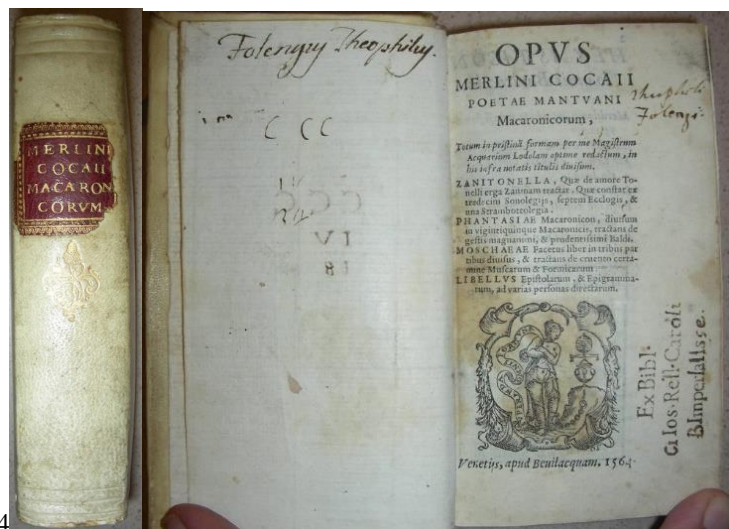 MERLINI
COCAII
MACARON
CORVM
Folengny Theophiley.
C CC
VI
OPVS
MERLINI COCAII
POETAE MANTVANI
Macaronicorum,
Totum in pristinā formam per me Magistrum
Acquarium Lodolam optime redactum, in
his infra notatis titulis diuisum.
ZANITONELLA, Quæ de amore To-
nelli erga Zaninam tractat. Quæ constat ex
tredecim Sonolegijs, septem Ecclogis, &
una Strambottolegia.
PHANTASIAE Macaronicon, diuisum
in vigintiquinque Macaronicis, tractans de
gestis magnanimi, & prudentissimi Baldi.
MOSCHAEAE Facetus liber in tribus par
tibus diuisus, & tractans de cruento certa-
mine Muscarum & Formicarum
LIBELLVS Epistolarum, & Epigramma-
tum, ad varias personas directarum.
Theophili
Folengi
Ex Bibl.
Ci Ios. Rell. Caroli
B Imperialisse.
Venetijs, apud Beuilacquam. 1564
4